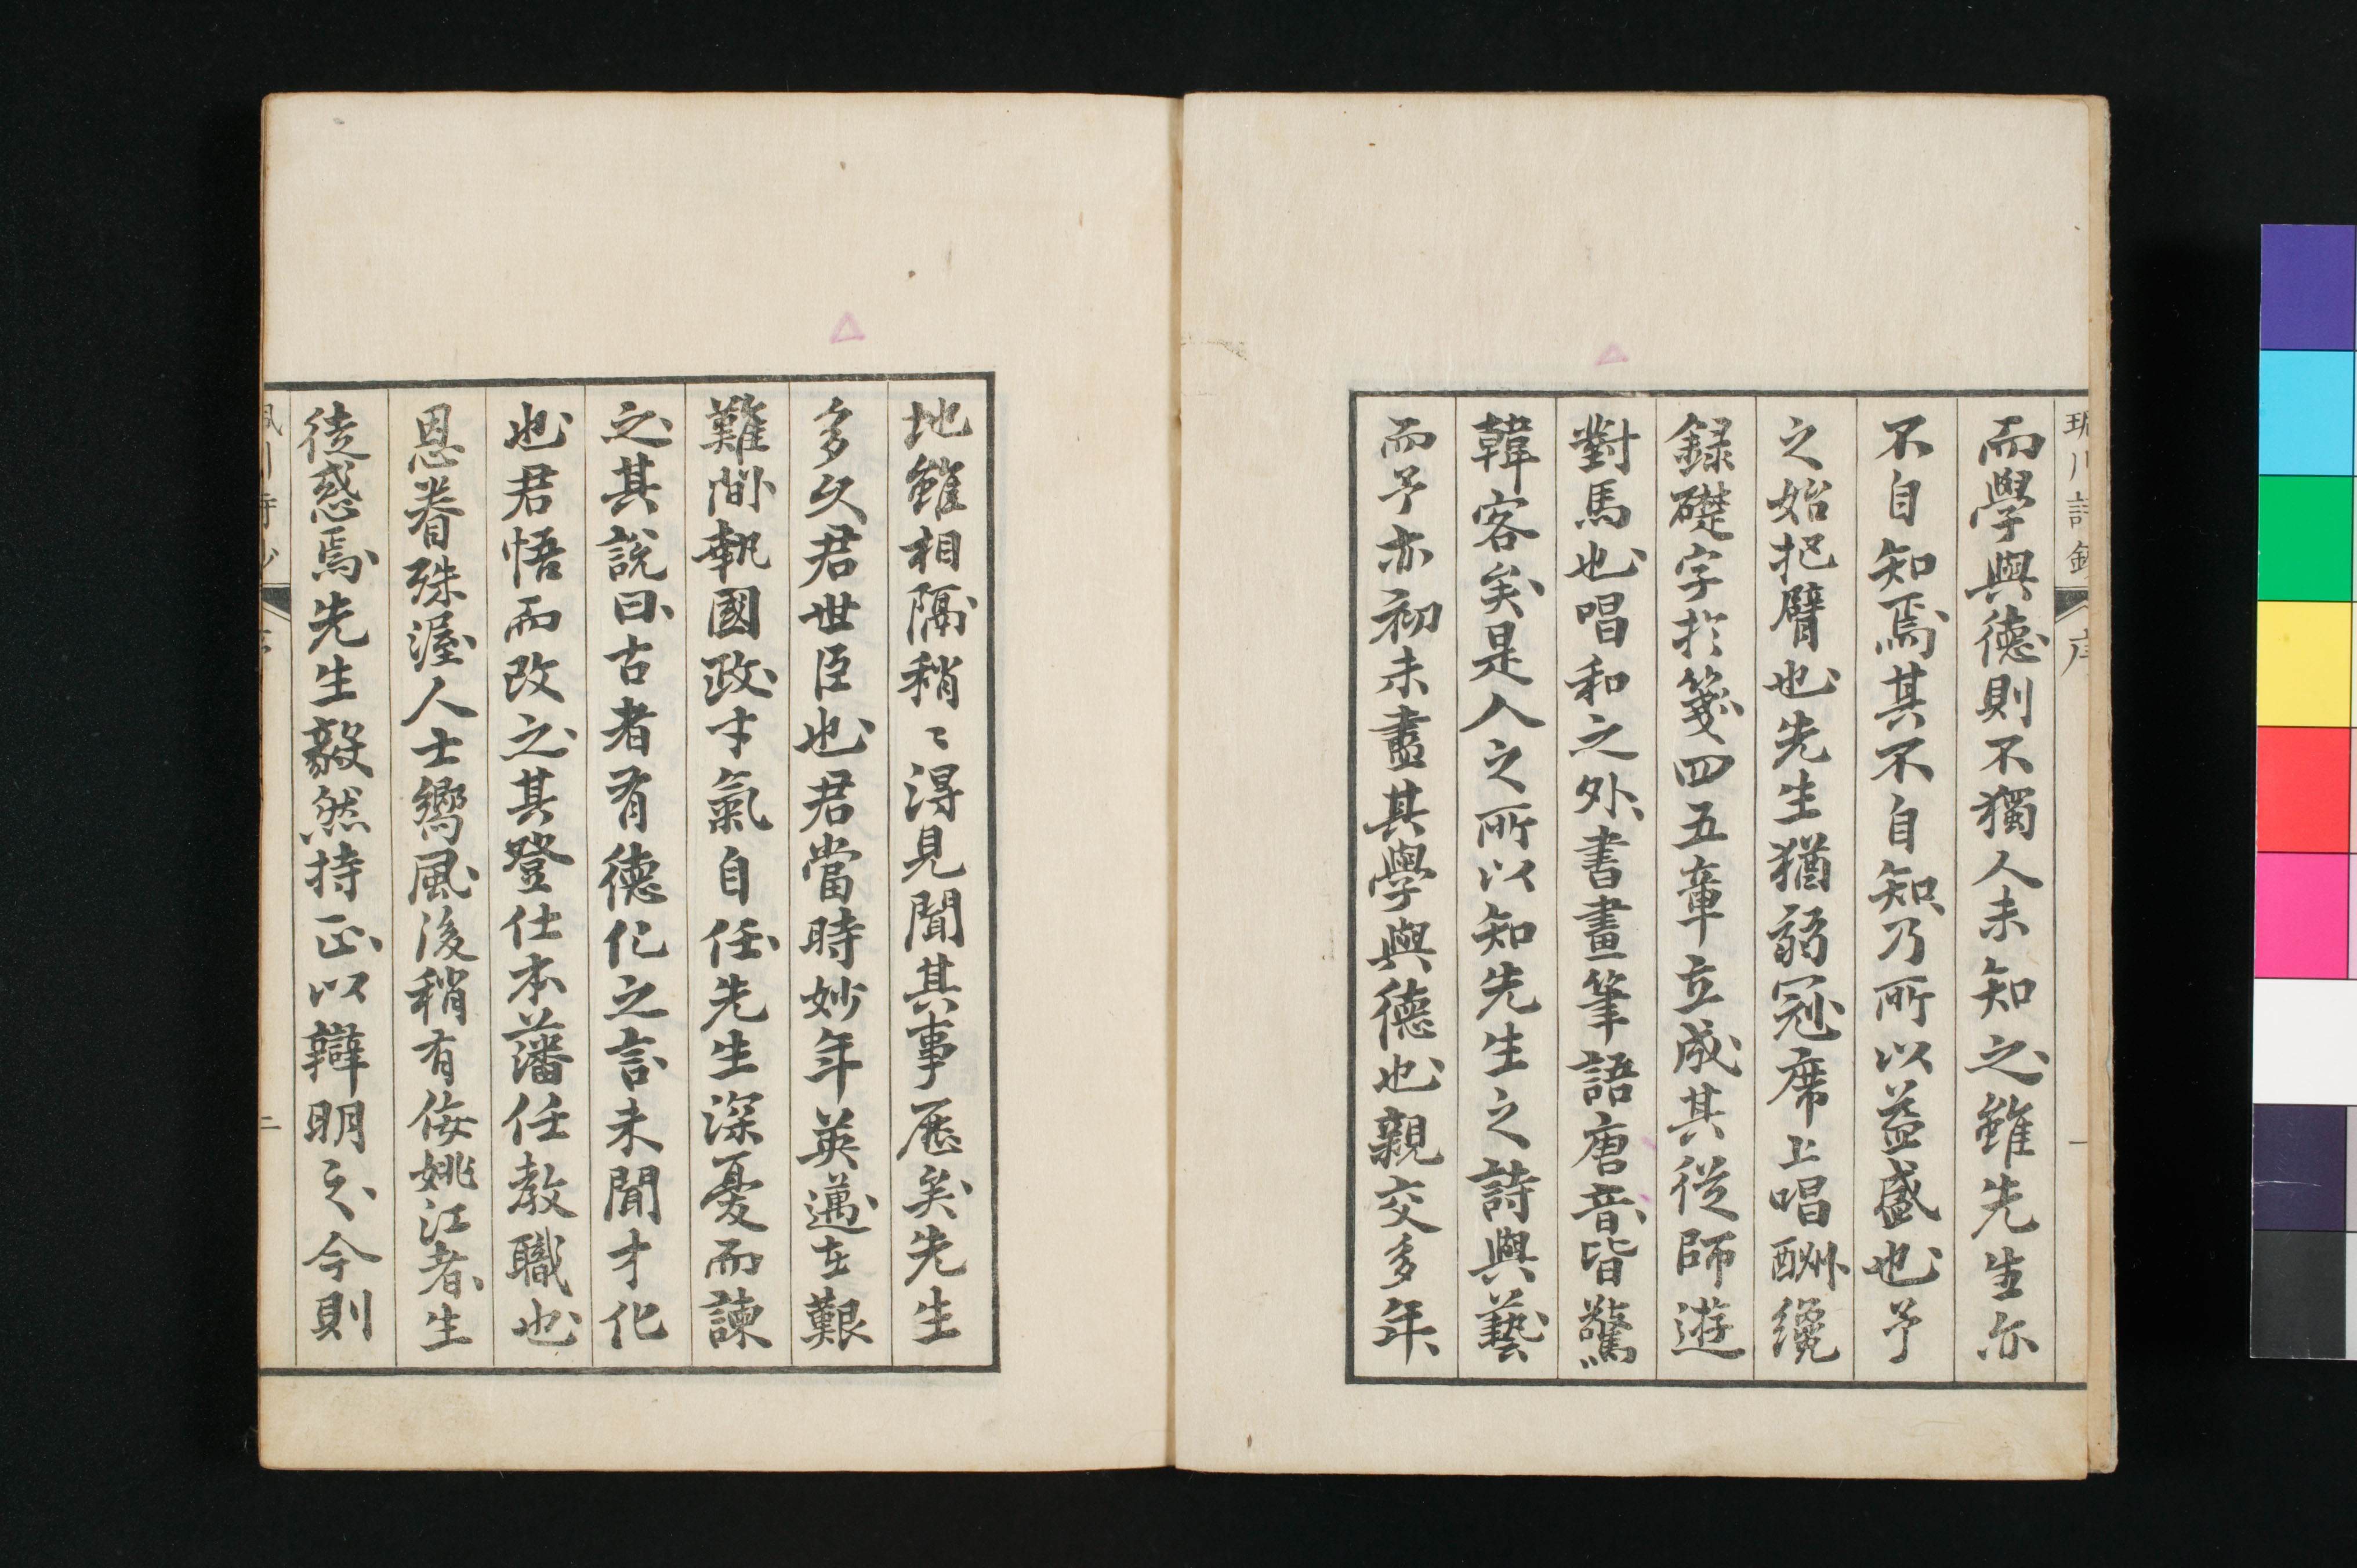 而學與徳則不獨人未知之雖先生亦
不自知焉其不自知乃所以益盛也予
之始把臂也先生猶弱冠席上唱酬纔
録礎字於箋四五章立成其從師遊
對馬也唱和之外書畫筆語唐音皆驚
韓客矣是人之所以知先生之詩與藝
而予亦初未盡其學與德也親交多年
地雖相隔稍〻得見聞其事歴矣先生
多久君世臣也君當時妙年英邁在艱
難間執國政才氣自任先生深憂而諫
之其説曰古者有德化之言未聞才化
也君悟而改之其登仕本藩任教職也
恩眷殊渥人士嚮風後稍有侮姚江者生
徒惑焉先生毅然持正以辯明之今則
序
一
二